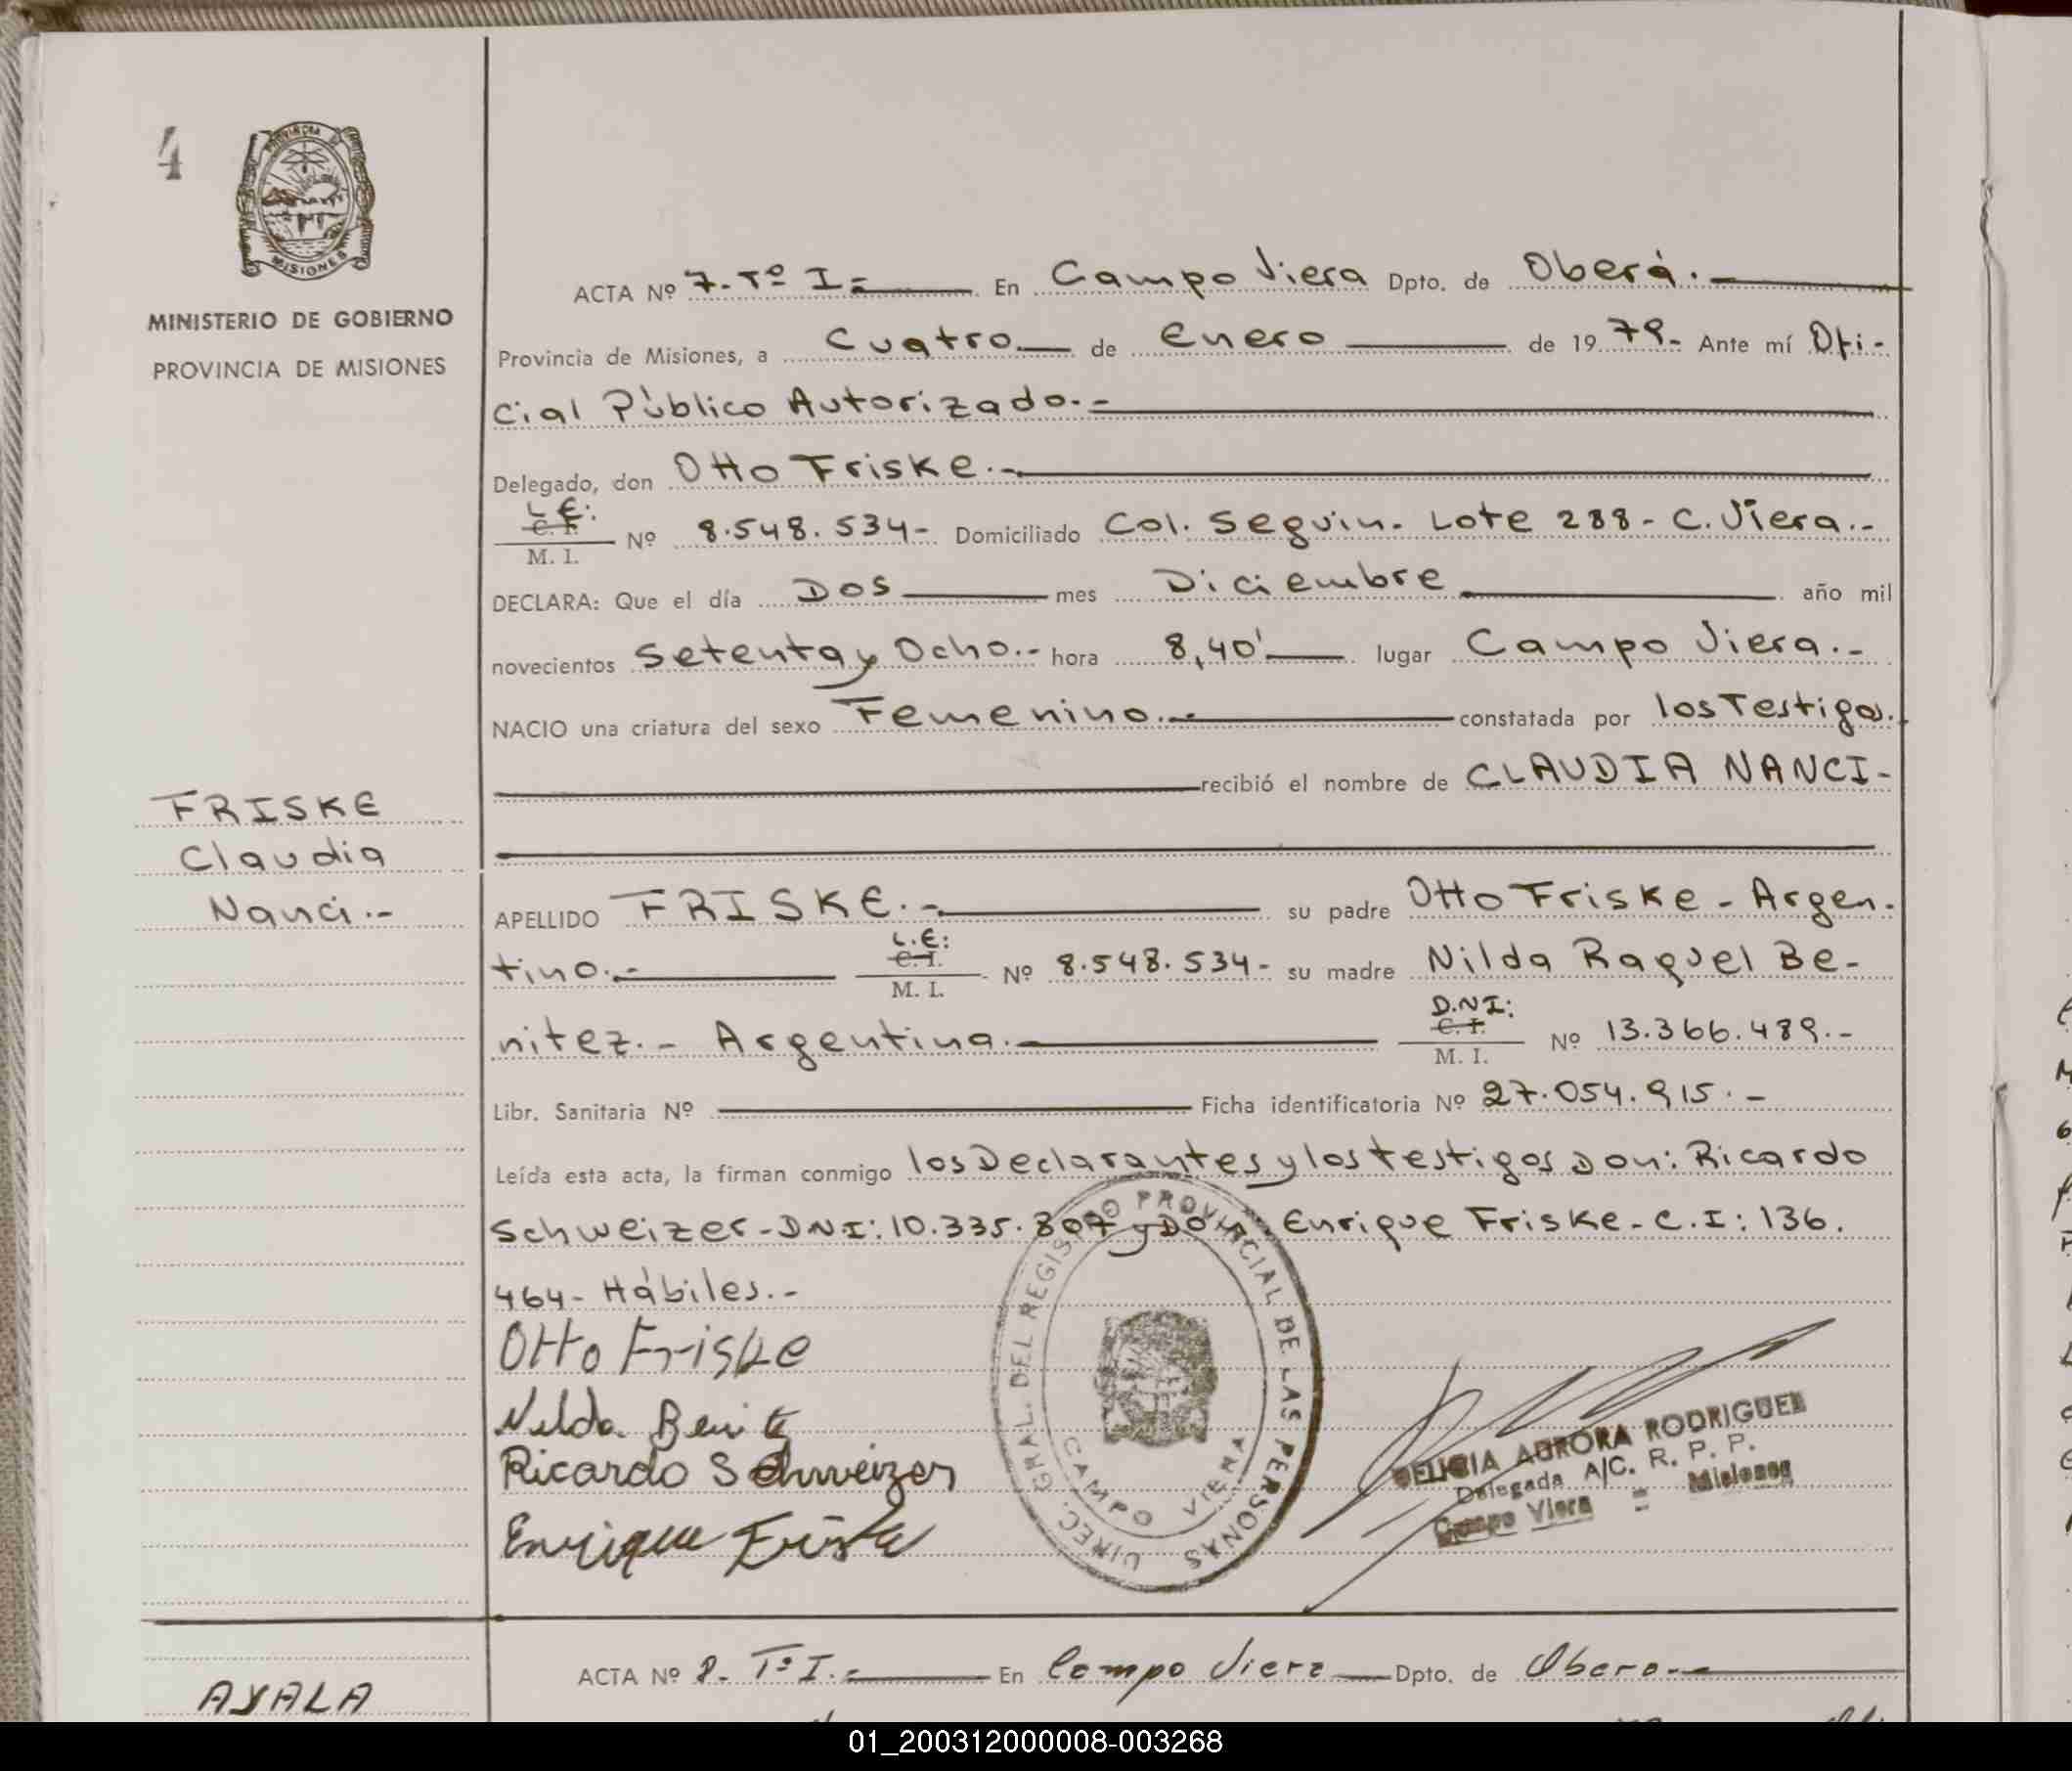 4
PROVINCIA DE
MISIONES
MINISTERIO DE GOBIERNO
PROVINCIA DE MISIONES
FRISKE
Claudia
Nanci.-
ACTA Nº 7.-Tº I.- En Campo Viera Dpto. de Oberá.-
Provincia de Misiones, a Cuatro de Enero de 1979.- Ante mí Ofi-
cial Público Autorizado.-
Delegado, don Otto Friske.-
L.E:
C. I.
M. I.
Nº 8.548.534- Domiciliado Col. Seguin. Lote 288- C. Viera.-
DECLARA: Que el día Dos mes Diciembre año mil
novecientos Setenta y Ocho.- hora 8,40' lugar Campo Viera.-
NACIO una criatura del sexo Femenino.- constatada por los Testigos.
recibió el nombre de CLAUDIA NANCI-
APELLIDO FRISKE.- su padre Otto Friske - Argen-
L.E:
tino.- C.I. Nº 8.548.534- su madre Nilda Raquel Be-
M. I.
D.N.I:
nitez.- Argentina.- C.I. Nº 13.366.489.-
M. I.
Libr. Sanitaria Nº Ficha identificatoria Nº 27.054.915.-
Leída esta acta, la firman conmigo los Declarantes y los testigos Don: Ricardo
Schweizer-DNI: 10.335.807 y Don Enrique Friske- C.I: 136.
464- Hábiles.-
Otto Friske
Nilda Benitz
Ricardo Schweizer
Enrique Friske
DIREC. GRAL. DEL REGISTRO PROVINCIAL DE LAS PERSONAS
CAMPO VIERA
DELICIA AURORA RODRIGUEZ
Delegada A/C. R. P. P.
Campo Viera = Misiones
ACTA Nº 8.- Tº I.- En Campo Viera Dpto. de Obera.-
AYALA
01_200312000008-003268